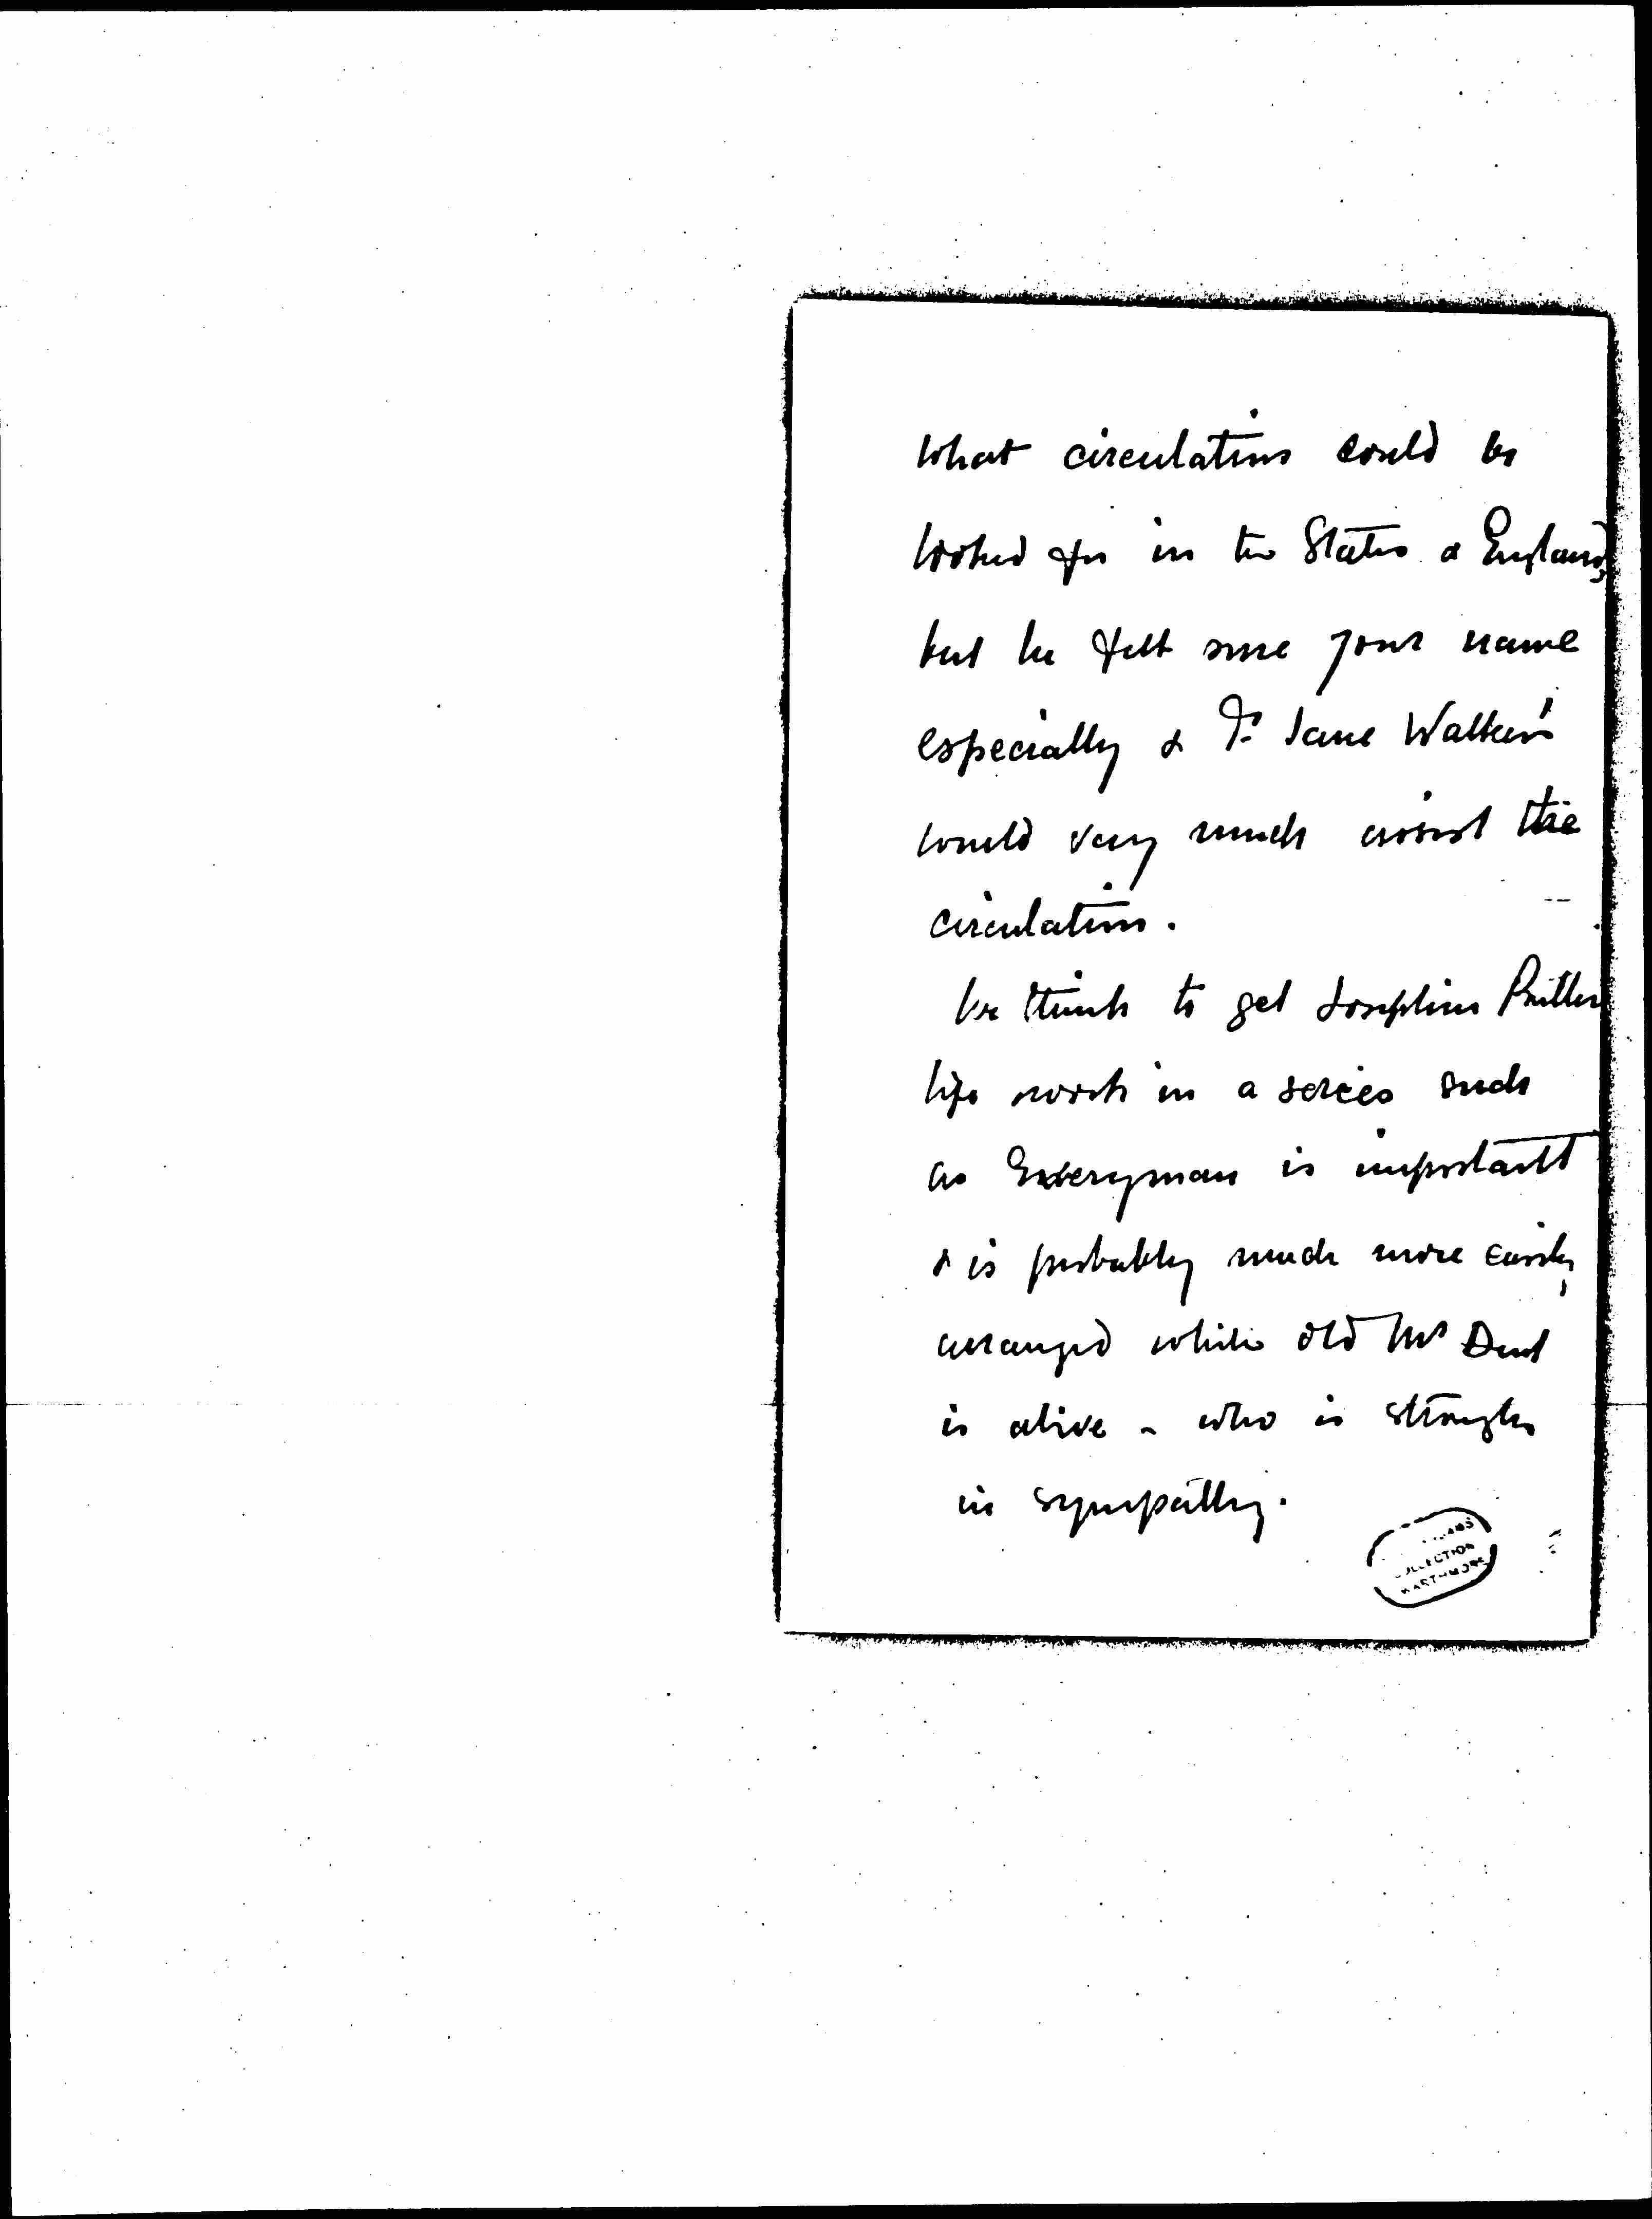 What circulation could be
looked for in the States & England,
but he felt sure your name
especially & Dr Jane Walker's
would very much assist the
circulation.
We think to get Josephine Butler
life work in a series such
as Everyman is important
& is probably much more easily
arranged while old Mr Dent
is alive - who is strongly
in sympathy.
COLLECTION